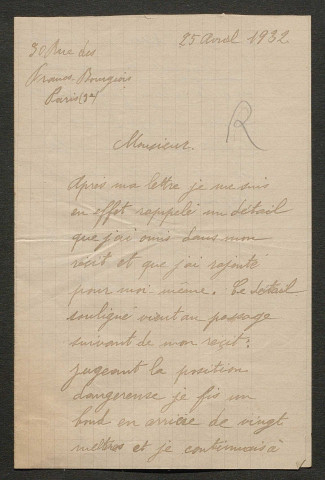 25 Avril 1932
30 Rue des
Francs Bourgeois
Paris (3e)
R
Monsieur.
Après ma lettre je me suis
en effet rappelé un détail
que j'ai omis dans mon
récit et que j'ai rajouté
pour moi même. Ce détail
souligné vient au passage
suivant de mon récit :
jugeant la position
dangereuse je fis un
bond en arrière de vingt
mètres et je continuais à